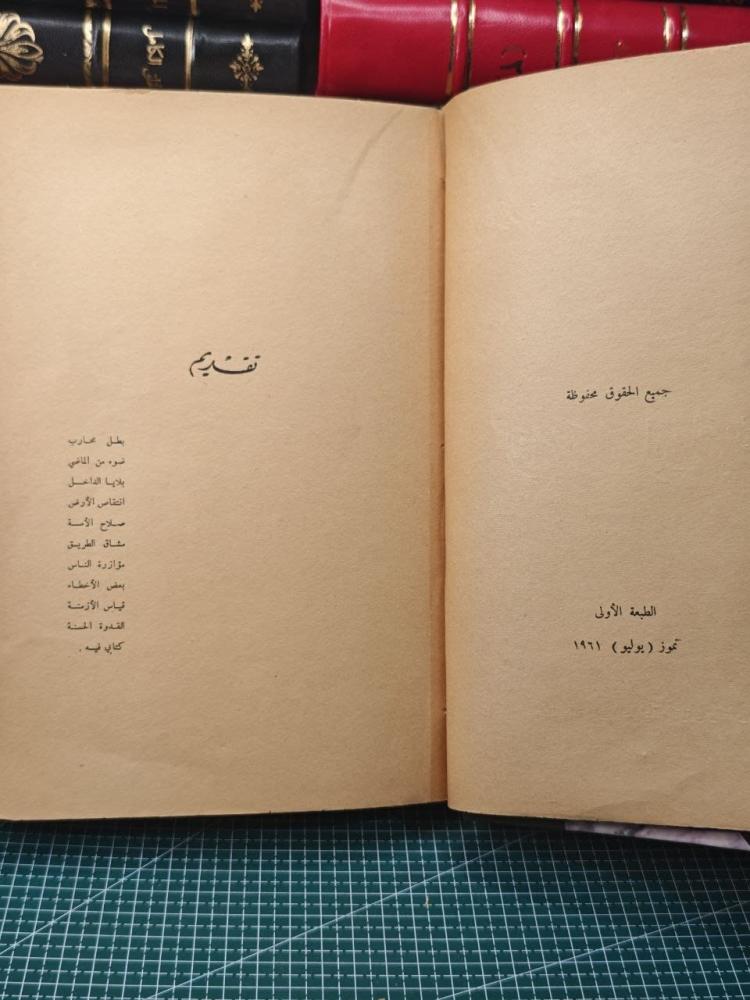 جميع الحقوق محفوظة
الطبعة الأولى
تموز ( يوليو ) ١٩٦١
تقديم
بطل محارب
ضوء من الماضي
بلايا الداخل
انتقاص الأرض
صلاح الأمة
مشاق الطريق
مؤازرة الناس
بعض الأخطاء
قياس الأزمنة
القدوة الحسنة
كتابي فيه .